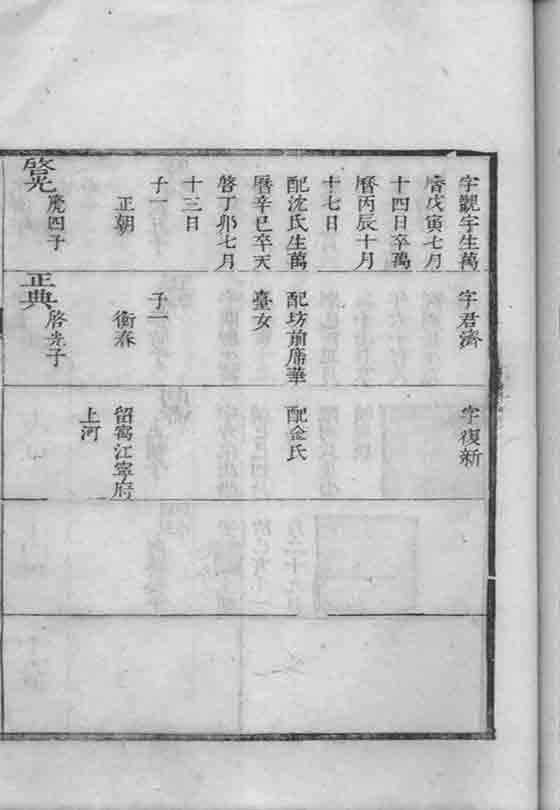 字觀宇生萬
曆戊寅七月
十四日卒萬
曆丙辰十月
十七日
配沈氏生萬
曆辛巳卒天
啓丁卯七月
十三日
子一
正朝
啓光
四子
字君濟
配坊前席華
臺女
子一
衡春
正典
啓光子
字復新
配金氏
留寓江寧府
上河